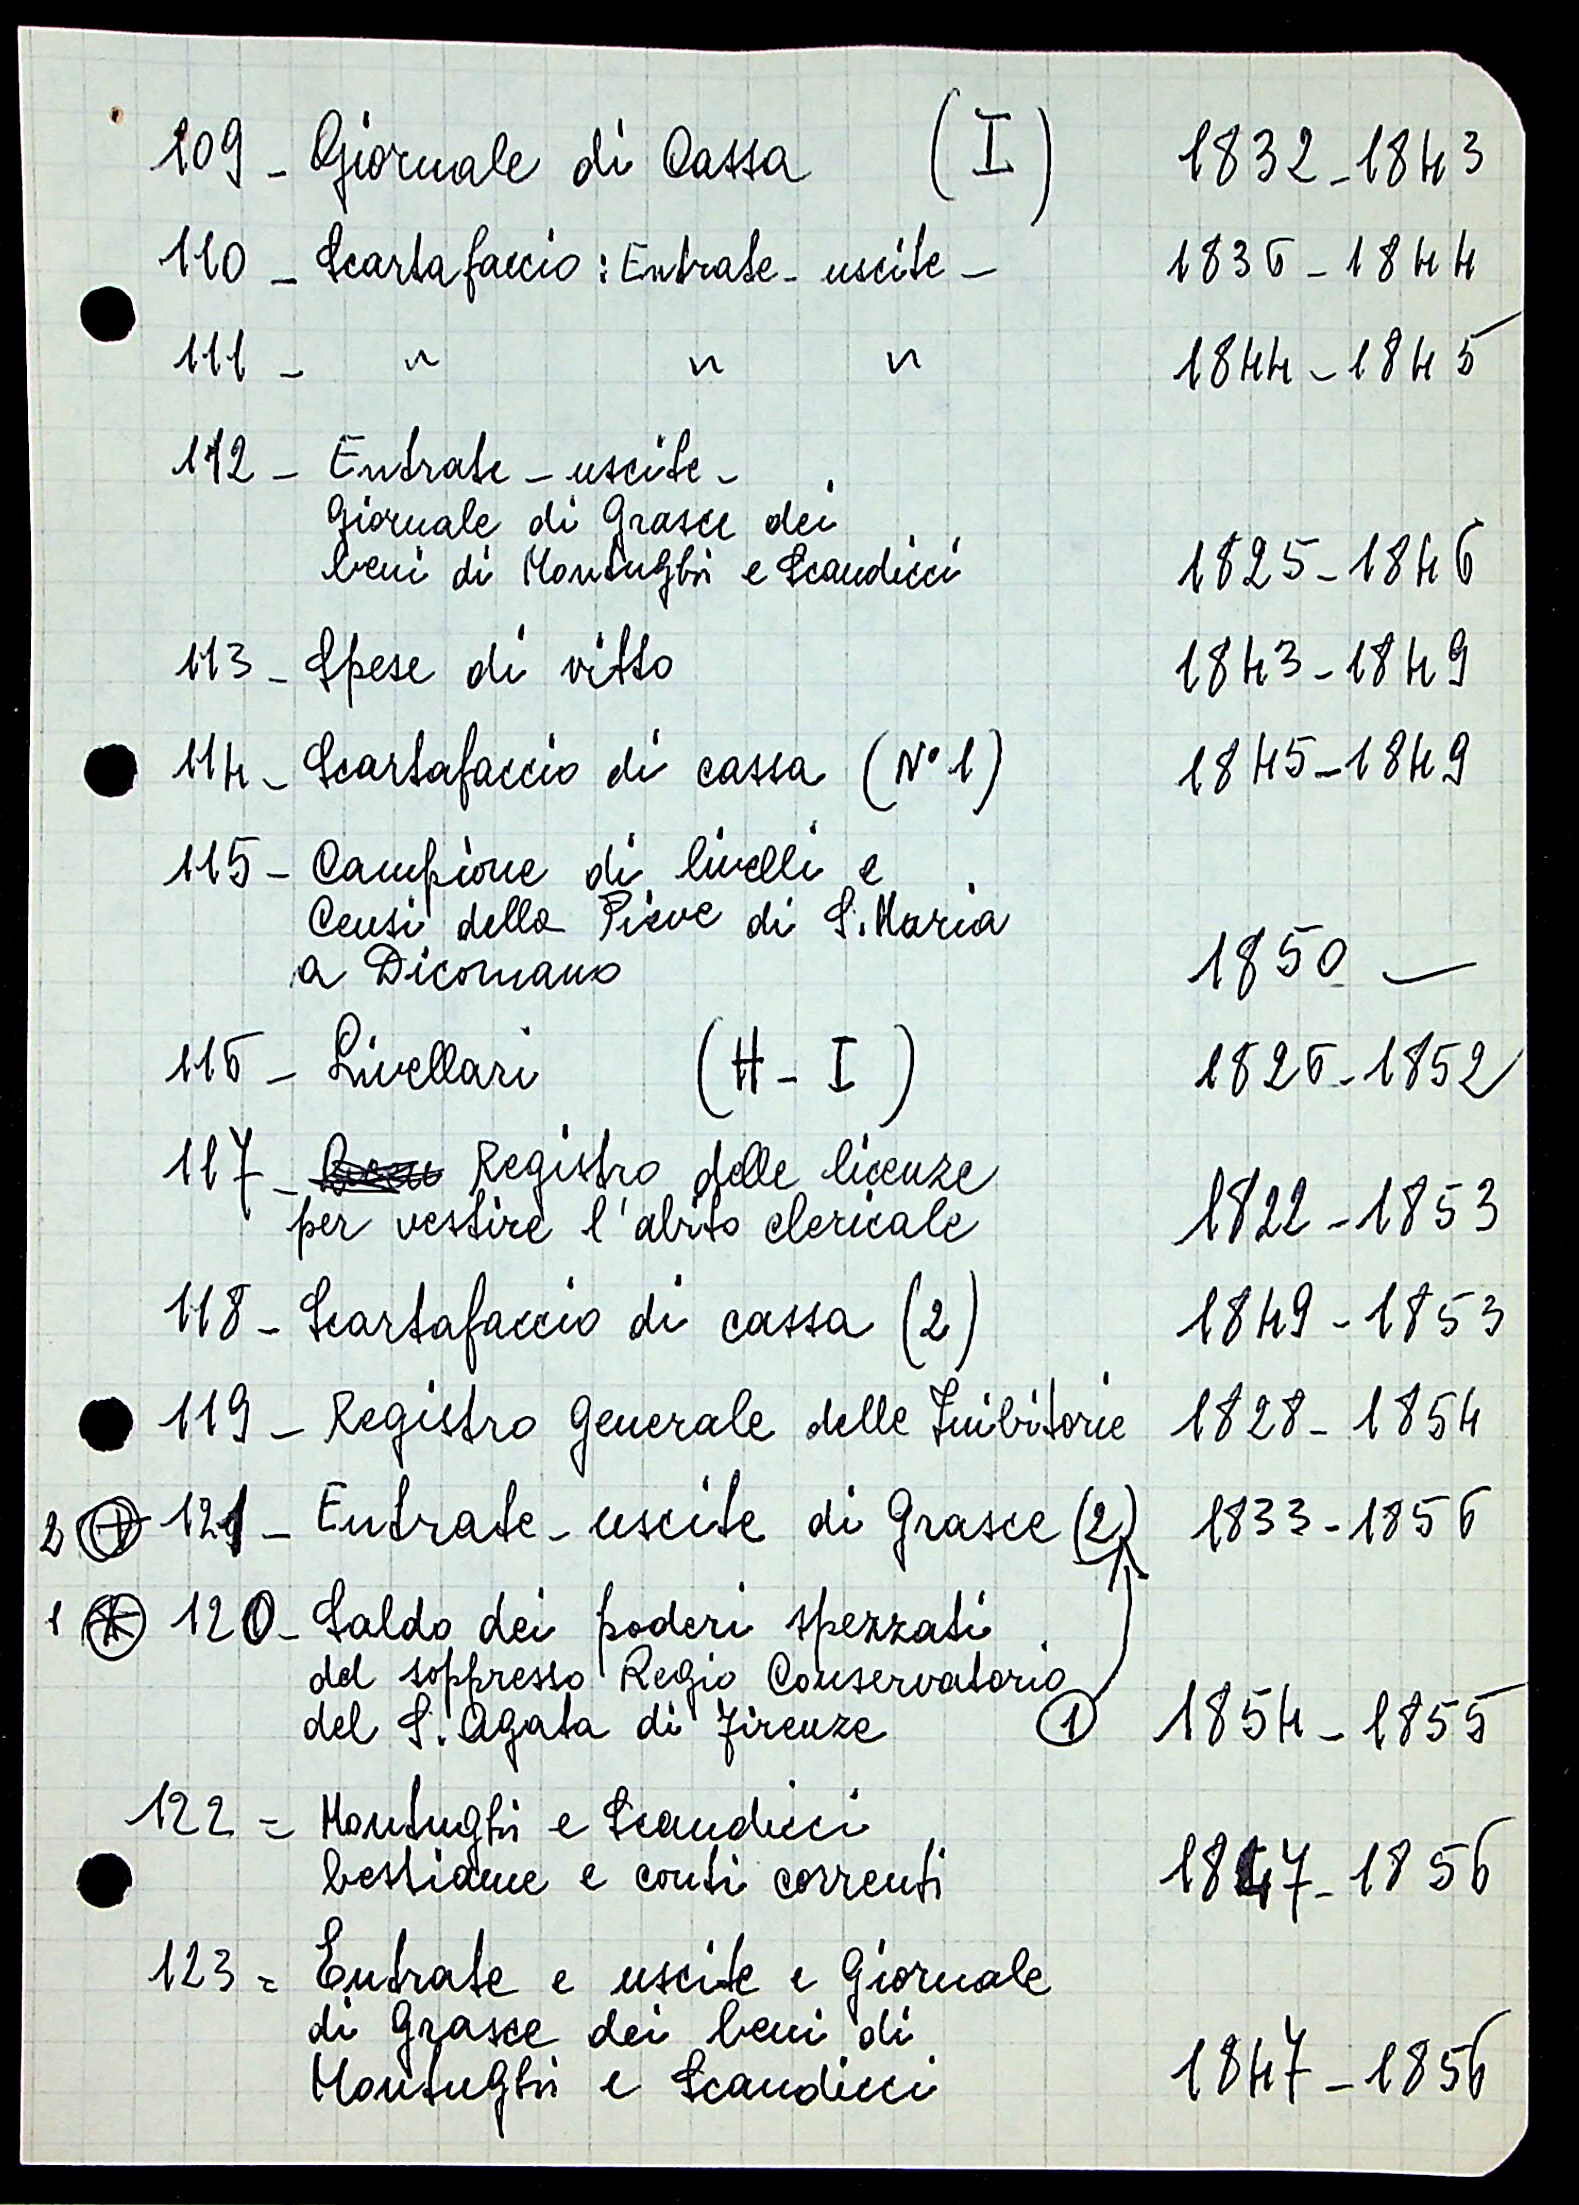 109 - Giornale di Cassa (I) 1832-1843
110 - Scartafaccio: Entrate- uscite - 1836-1844
111 - " " " 1844-1845
112 - Entrate - uscite -
Giornale di Grasce dei
beni di Montughi e Scandicci 1825-1846
113 - Spese di vitto 1843-1849
114 - Scartafaccio di cassa (N° 1) 1845-1849
115 - Campione di livelli e
Censi della Pieve di S. Maria
a Dicomano 1850 -
116 - Livellari (H - I) 1826-1852
117 - Registro delle licenze
per vestire l'abito clericale 1822-1853
118 - Scartafaccio di cassa (2) 1849-1853
119 - Registro Generale delle Inibitorie 1828-1854
2 121 - Entrate - uscite di Grasce (2) 1833-1856
1 120 - Saldo dei poderi spezzati
del soppresso Regio Conservatorio
del S. Agata di Firenze 1 1854-1855
122 = Montughi e Scandicci
bestiame e conti correnti 1847-1856
123 = Entrate e uscite e Giornale
di Grasce dei beni di
Montughi e Scandicci 1847-1856